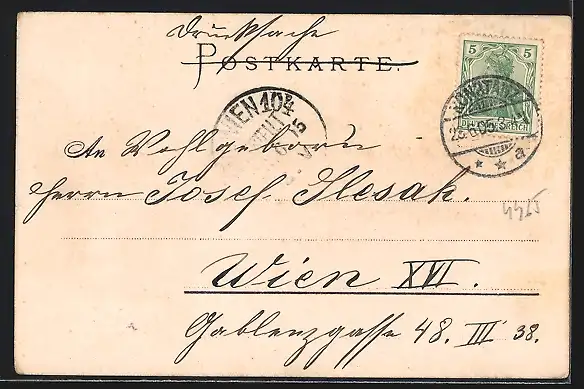 Drucksache
POSTKARTE.
5 5
DEUTSCHES REICH
KONSTANZ
* * a
WIEN 10 4
An Wohlgeborn
Herrn Josef Slesak.
4925
Wien XVI.
Gablenzgasse 48. III 38.